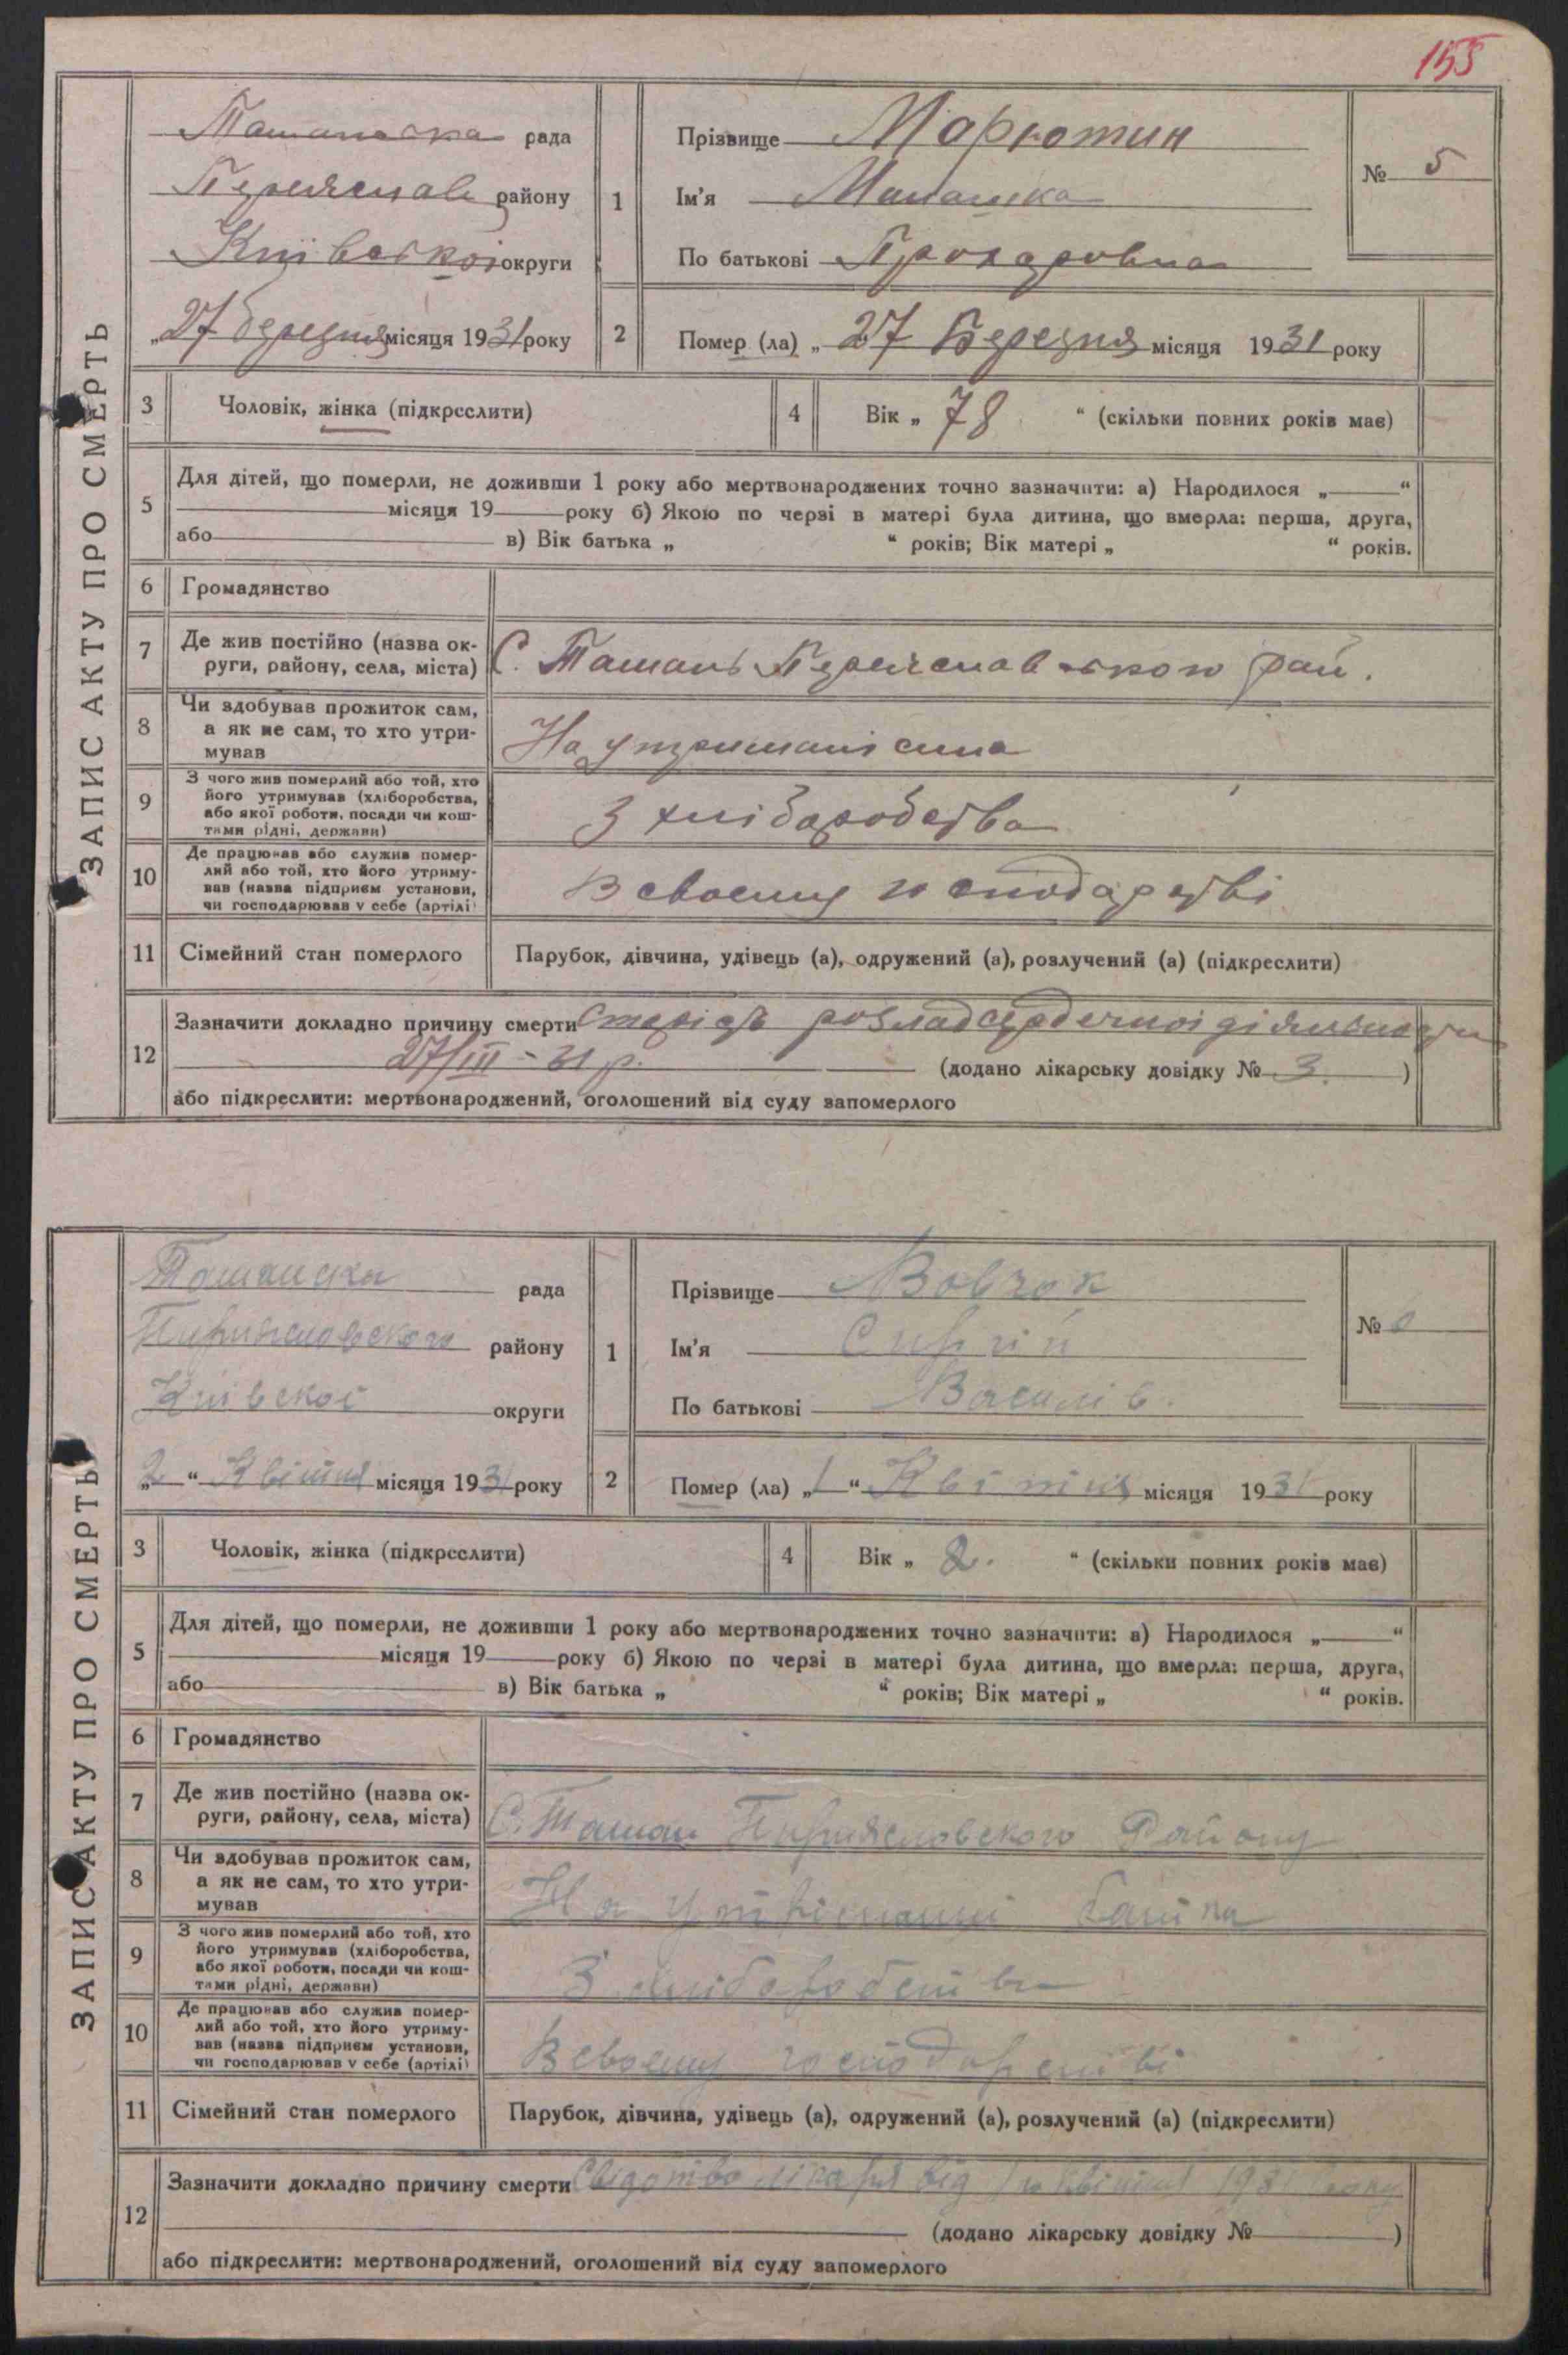 155
ЗАПИС АКТУ ПРО СМЕРТЬ
Ташанська рада
Переяслав району
Київської округи
„27 березня місяця 1931 року
1
Прізвище Моркотин
Ім'я Малашка
По батькові Прохоровна
№ 5
2
Помер (ла) „ 27 Березня місяця 1931 року
3 Чоловік, жінка (підкреслити)
4 Вік „ 78 “ (скільки повних років має)
5
Для дітей, що померли, не доживши 1 року або мертвонароджених точно зазначити: а) Народилося „ “
місяця 19 року б) Якою по черзі в матері була дитина, що вмерла: перша, друга,
або в) Вік батька „ “ років; Вік матері „ “ років.
6 Громадянство
7 Де жив постійно (назва ок-
руги, району, села, міста)
С. Ташань Переяславского рай.
8 Чи здобував прожиток сам,
а як не сам, то хто утри-
мував
На утримані сина
9 З чого жив померлий або той, хто
його утримував (хліборобства,
або якої роботи, посади чи кош-
тами рідні, держави)
З хліборобства
10 Де працював або служив помер-
лий або той, хто його утриму-
вав (назва підприєм установи,
чи господарював у себе (артілі)
В своему господарстві
11 Сімейний стан померлого
Парубок, дівчина, удівець (а), одружений (а), розлучений (а) (підкреслити)
12
Зазначити докладно причину смерти Старість розлад сердечної діяльности
27/III - 31 р. (додано лікарську довідку № 3. )
або підкреслити: мертвонароджений, оголошений від суду запомерлого
ЗАПИС АКТУ ПРО СМЕРТЬ
Ташанска рада
району
Київскої округи
„2“ Квітня місяця 1931 року
1
Прізвище Вовчок
Ім'я Сиргій
По батькові Василів.
№
2
Помер (ла) „1“ Квітня місяця 1931 року
3 Чоловік, жінка (підкреслити)
4 Вік „ 2. “ (скільки повних років має)
5
Для дітей, що померли, не доживши 1 року або мертвонароджених точно зазначити: а) Народилося „ “
місяця 19 року б) Якою по черзі в матері була дитина, що вмерла: перша, друга,
або в) Вік батька „ “ років; Вік матері „ “ років.
6 Громадянство
7 Де жив постійно (назва ок-
руги, району, села, міста)
С. Ташан Району
8 Чи здобував прожиток сам,
а як не сам, то хто утри-
мував
На утріманні батка
9 З чого жив померлий або той, хто
його утримував (хліборобства,
або якої роботи, посади чи кош-
тами рідні, держави)
З хліборобства
10 Де працював або служив помер-
лий або той, хто його утриму-
вав (назва підприєм установи,
чи господарював у себе (артілі)
В своему господарстві
11 Сімейний стан померлого
Парубок, дівчина, удівець (а), одружений (а), розлучений (а) (підкреслити)
12
Зазначити докладно причину смерти Свідотво лікаря від 1го квітня 1931 року
(додано лікарську довідку № )
або підкреслити: мертвонароджений, оголошений від суду запомерлого